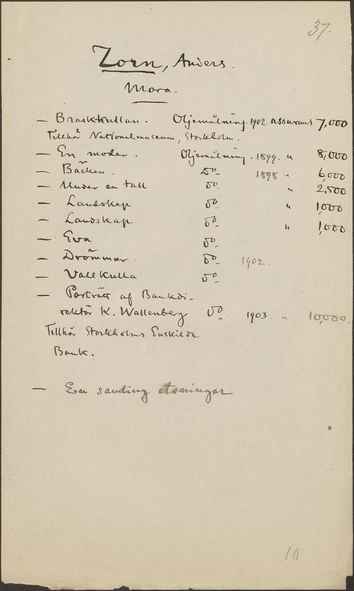 37.
Zorn, Anders.
Mora.
— Braskkullan. Oljemålning. 1902. Assurans 7,000
Tillhör Nationalmuseum, Stockholm.
— En moder. Oljemålning. 1899. " 8,000
— Bäcken. do. 1898 " 6,000
— Under en tall do. " 2,500
— Landskap do. " 1,000
— Landskap. do. " 1,000
— Eva do.
— Drömmar. do. 1902.
— Vallkulla do.
— Porträtt af Bankdi-
rektör K. Wallenberg do. 1903 " 10,000.
Tillhör Stockholms Enskilda
Bank.
— En samling etsningar
10